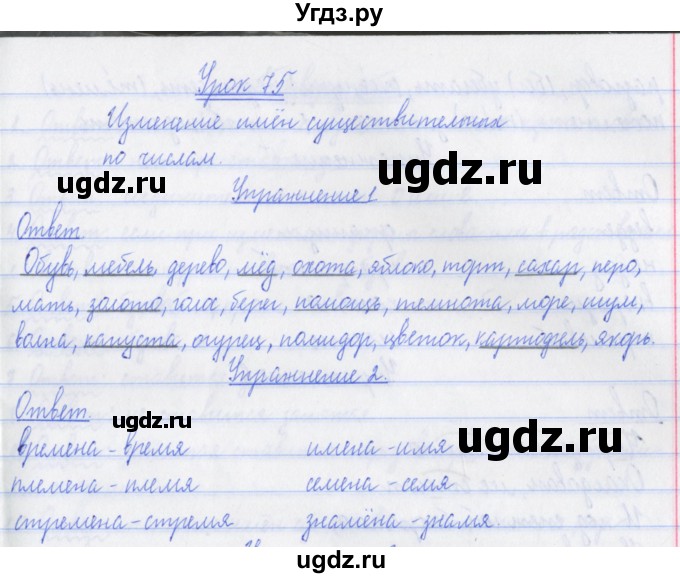 Угдз.ру
Урок 75
Изменение имён существительных
по числам.
ugdz.ru ugdz.ru
Упражнение 1
Ответ.
Обувь, мебель, дерево, мёд, охота, яблоко, торт, сахар, перо,
мать, золото, голос, берег, помощь, темнота, море, шум,
волна, капуста, огурец, помидор, цветок, картофель, якорь.
Упражнение 2.
Ответ.
ugdz.ru ugdz.ru
времена - время имена - имя
племена - племя семена - семя
стремена - стремя знамёна - знамя
ugdz.ru